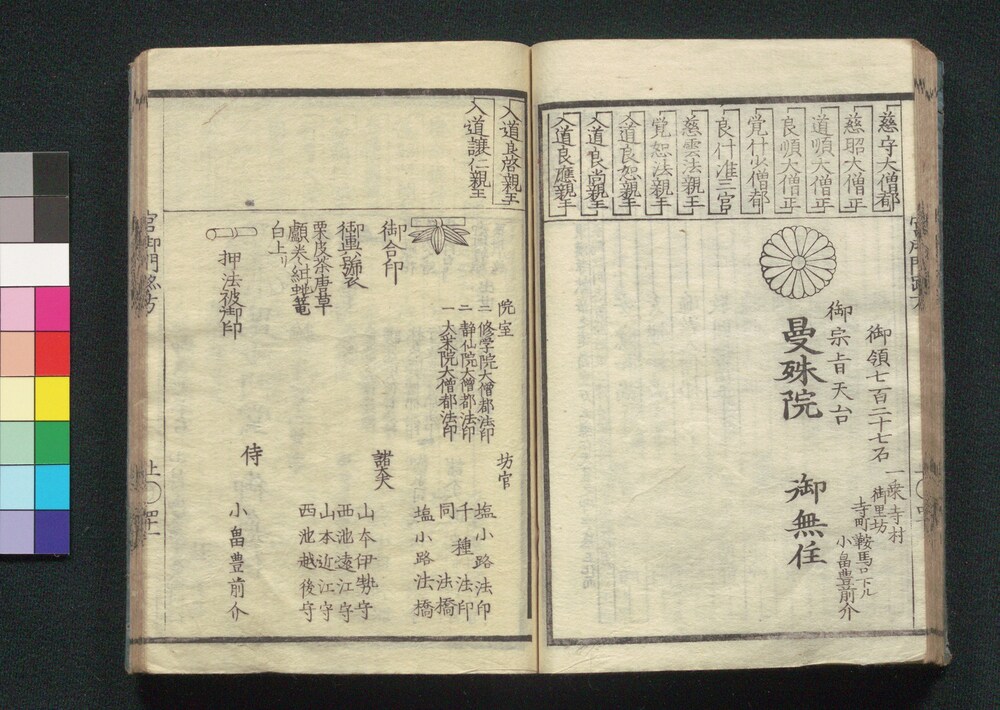 慈守大僧都
慈昭大僧正
道順大僧正
良順大僧正
覚什少僧都
良什准三宮
慈雲法親王
覚恕法親王
入道良恕親王
入道良尚親王
入道良應親王
御領七百二十七石
御宗旨天台
曼殊院 御無住
一乗寺村
御里坊
寺町鞍馬口下ル
小畠豊前介
入道良啓親王
入道譲仁親王
院室
修学院大僧都法印
静仙院大僧都法印
大采院大僧都法印
坊官
塩小路法印
千種法印
同 法橋
塩小路法橋
諸大夫
山本伊勢守
西池遠江守
山本近江守
西池越後守
侍
小畠豊前介
御合印
御輿舁
栗皮茶唐草
白上り
押法被御印
上